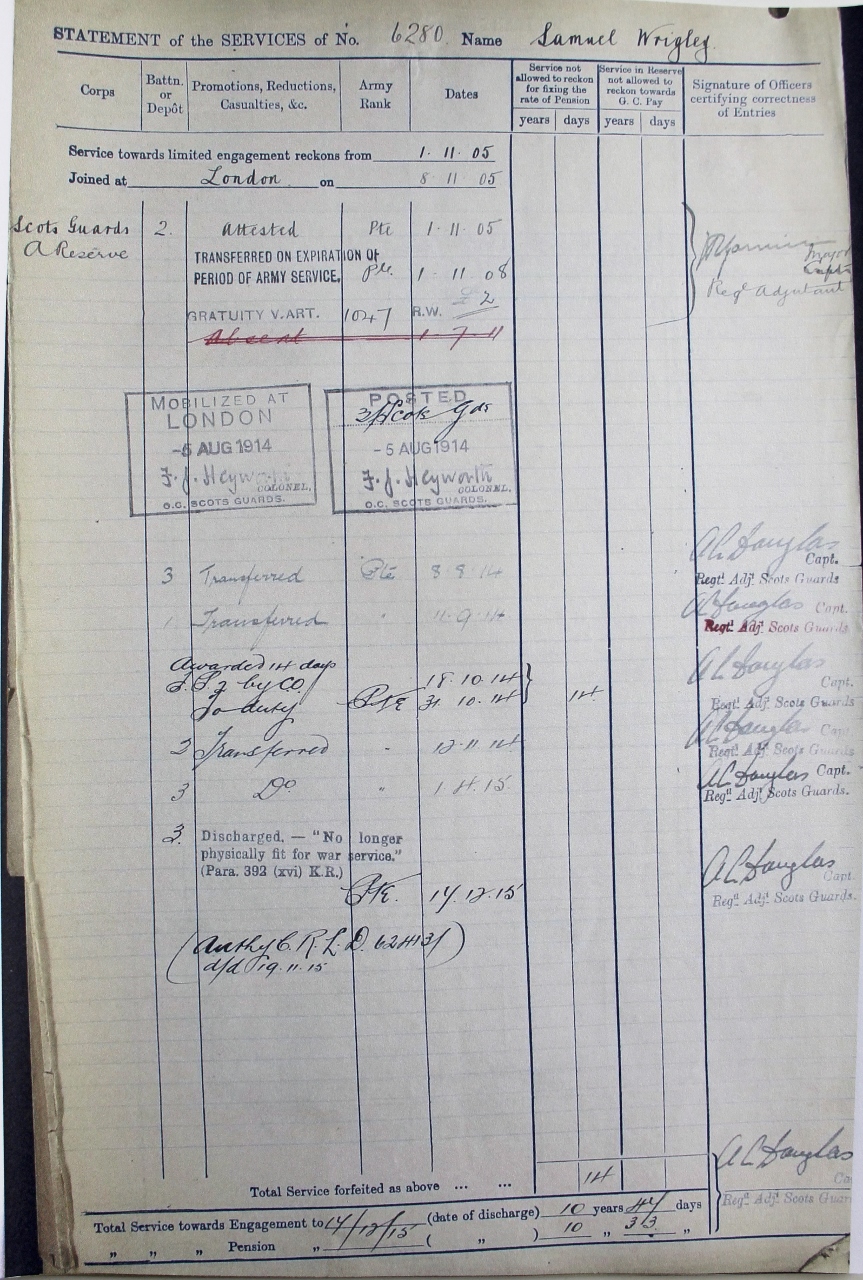 STATEMENT of the SERVICES of No. 6280 Name Samuel Wrigley.
Corps
Battn. or Depôt
Promotions, Reductions, Casualties, &c.
Army Rank
Dates
Service not allowed to reckon for fixing the rate of Pension
Service in Reserve not allowed to reckon towards G. C. Pay
Signature of Officers certifying correctness of Entries
years days years days
Service towards limited engagement reckons from 1·11·05
Joined at London on 8·11·05
Scots Guards 2. Attested Pte 1·11·05
A Reserve
TRANSFERRED ON EXPIRATION OF
PERIOD OF ARMY SERVICE. Pte. 1·11·08
Major
Capt
Regl Adjutant
GRATUITY V. ART. 1047 R.W. £2
Absent 1-7-11
MOBILIZED AT
LONDON
-5 AUG 1914
F. J. Heyworth
COLONEL.
O.C. SCOTS GUARDS.
POSTED
3/Scots Gds
-5 AUG 1914
F. J. Heyworth
COLONEL.
O.C. SCOTS GUARDS.
3 Transferred Pte 8·8·14 A C Douglas Capt.
Regtl. Adjt. Scots Guards
1 Transferred " 11·9·14 A C Douglas Capt.
Regtl. Adjt. Scots Guards
Awarded 14 days
by CO. 18·10·14
To duty Pte 31·10·14 14 A C Douglas Capt.
Regtl. Adjt. Scots Guards
Transferred " 12·11·14 A C Douglas Capt.
Regtl. Adjt. Scots Guards
3 Do " 1·4·15 A C Douglas Capt.
Regtl. Adjt. Scots Guards.
3. Discharged, — "No longer
physically fit for war service."
(Para. 392 (xvi) K.R.)
Pte. 17·12·15 A C Douglas Capt.
Regtl. Adjt. Scots Guards.
(Authy C. R. L. D.
d/d 19.11.15
A C Douglas
Regtl. Adjt. Scots Guar
Total Service forfeited as above ... ... 14
Total Service towards Engagement to 17/12/15 (date of discharge) 10 years 47 days
" " " Pension " ( " ) 10 " 313 "